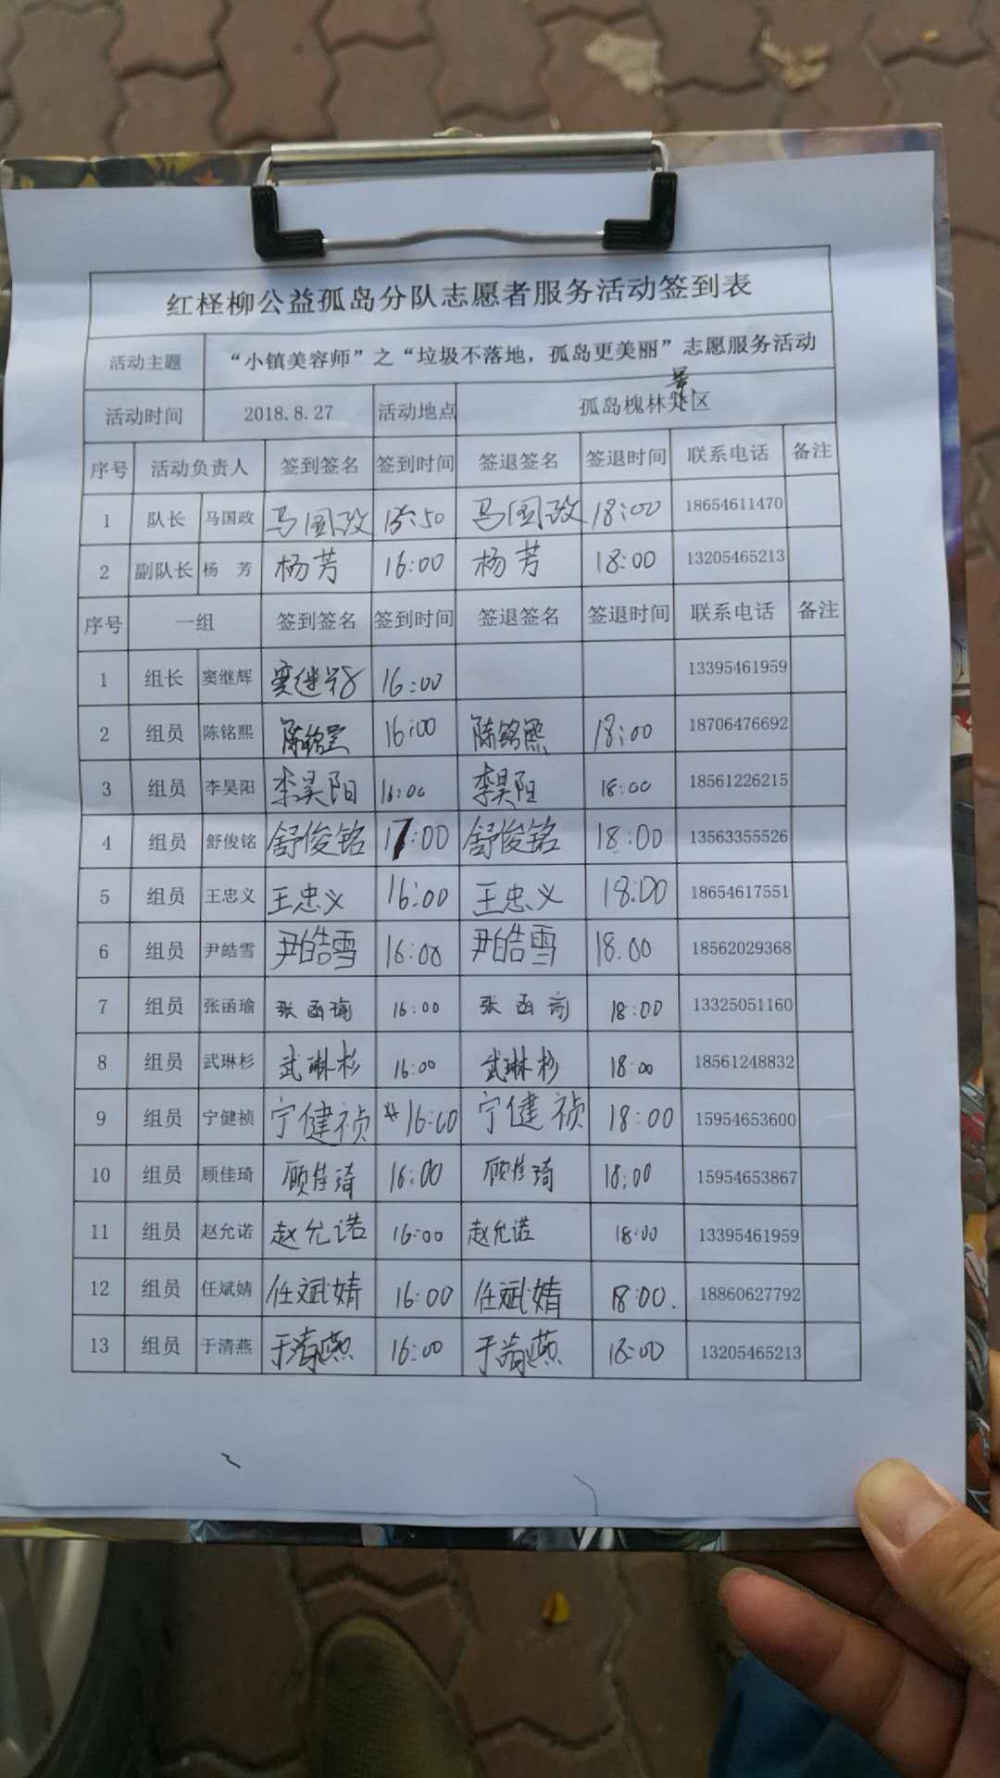 红柽柳公益孤岛分队志愿者服务活动签到表
活动主题 “小镇美容师”之“垃圾不落地，孤岛更美丽”志愿服务活动
活动时间 2018.8.27 活动地点 孤岛槐林景区
序号 活动负责人 签到签名 签到时间 签退签名 签退时间 联系电话 备注
1 队长 马国政 马国政 15:50 马国政 18:00 18654611470
2 副队长 杨 芳 杨芳 16:00 杨芳 18:00 13205465213
序号 一组 签到签名 签到时间 签退签名 签退时间 联系电话 备注
1 组长 窦继辉 窦继辉 16:00 13395461959
2 组员 陈铭熙 陈铭熙 16:00 陈铭熙 18:00 18706476692
3 组员 李昊阳 李昊阳 16:00 李昊阳 18:00 18561226215
4 组员 舒俊铭 舒俊铭 17:00 舒俊铭 18:00 13563355526
5 组员 王忠义 王忠义 16:00 王忠义 18:00 18654617551
6 组员 尹皓雪 尹皓雪 16:00 尹皓雪 18.00 18562029368
7 组员 张函瑜 张函瑜 16:00 张函瑜 18:00 13325051160
8 组员 武琳杉 武琳杉 16:00 武琳杉 18:00 18561248832
9 组员 宁健祯 宁健祯 16:00 宁健祯 18:00 15954653600
10 组员 顾佳琦 顾佳琦 16:00 顾佳琦 18:00 15954653867
11 组员 赵允诺 赵允诺 16:00 赵允诺 18:00 13395461959
12 组员 任斌婧 任斌婧 16:00 任斌婧 18:00. 18860627792
13 组员 于清燕 于清燕 16:00 于清燕 18:00 13205465213